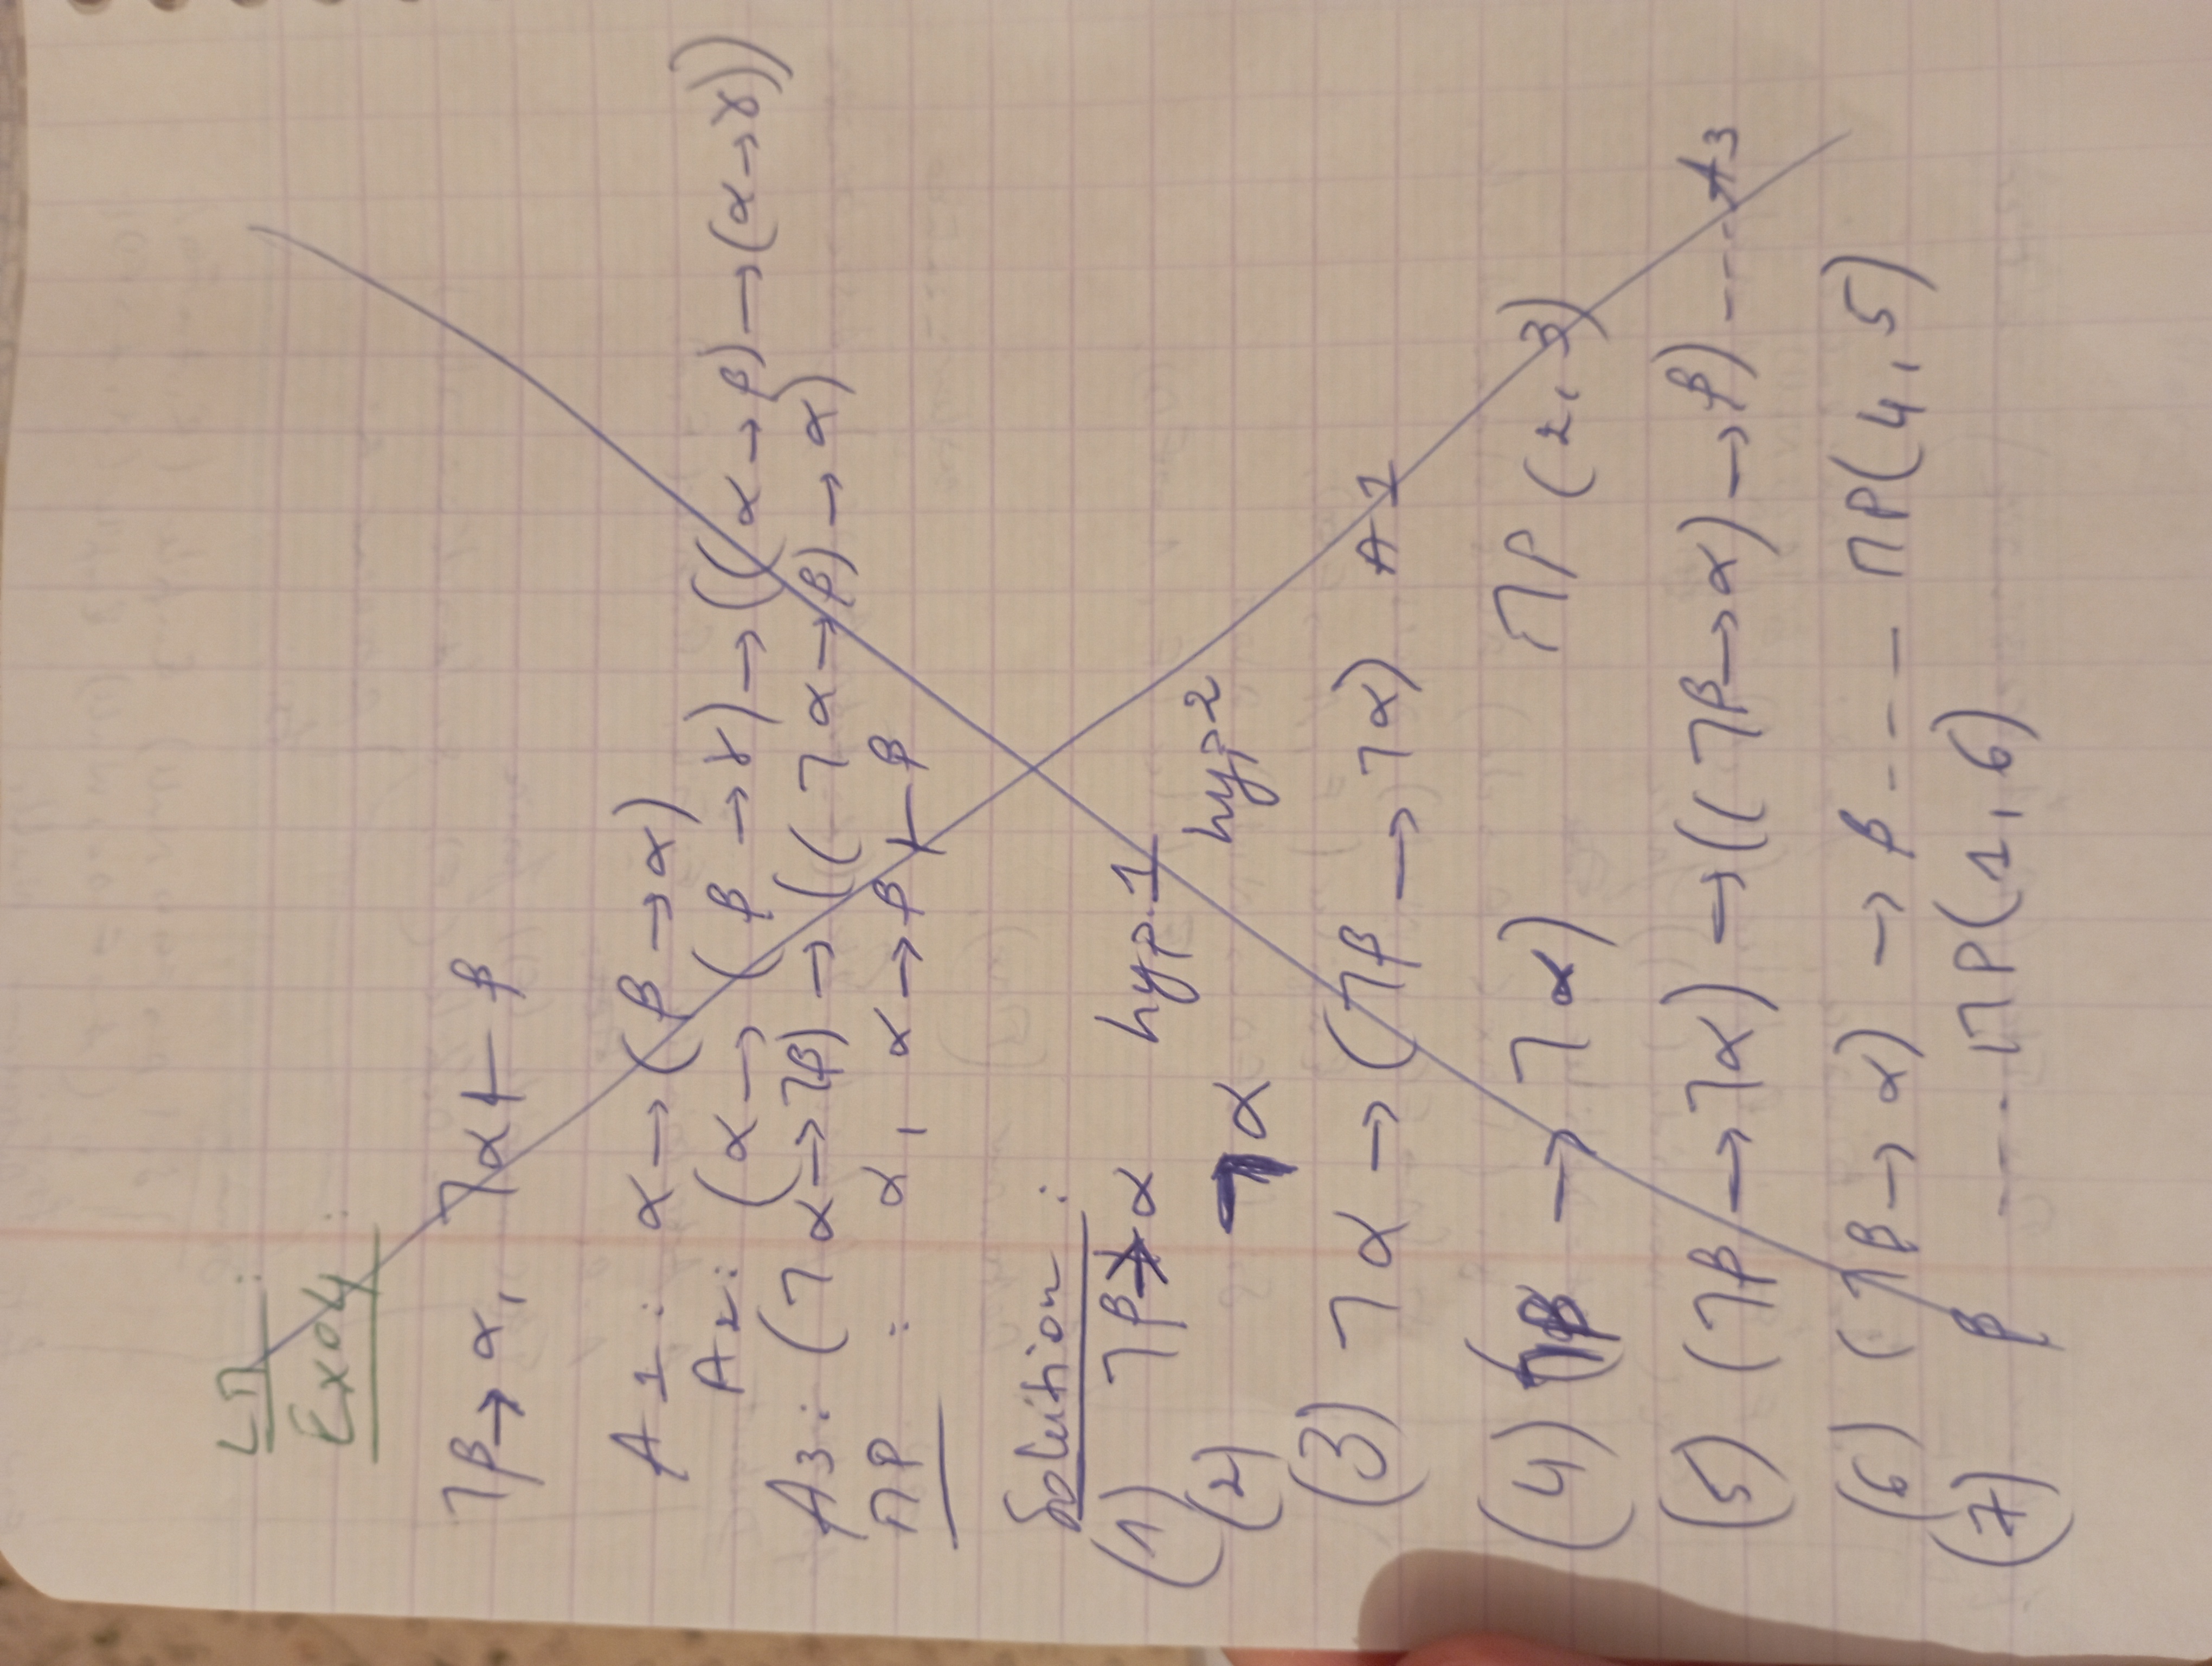 LM :
Exo4 :
¬β → α, ¬α ⊢ β
A1: α → (β → α)
A2: (α → (β → γ) → ((α → β) → (α → γ))
A3: (¬α → ¬β) → ((¬α → β) → α)
MP : α, α → β ⊢ β
Solution :
(1) ¬β → α hyp 1
(2) ¬α hyp 2
(3) ¬α → (¬β → ¬α) A1
(4) (¬β → ¬α) MP (2,3)
(5) (¬β → ¬α) → ((¬β → α) → β) ---- A3
(6) (¬β → α) → β ---- MP(4,5)
(7) β ---- MP(1,6)